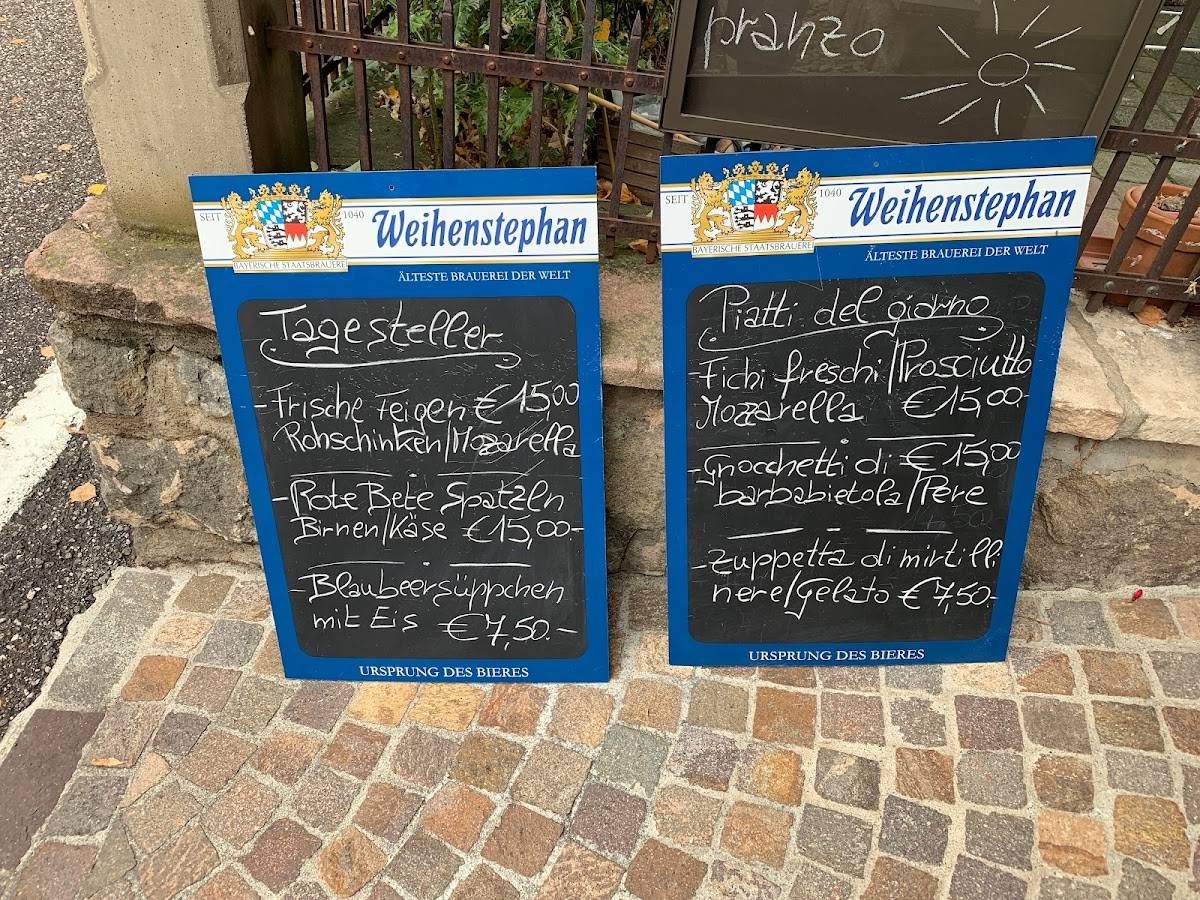 pranzo
SEIT 1040
Weihenstephan
BAYERISCHE STAATSBRAUEREI
ÄLTESTE BRAUEREI DER WELT
Tagesteller
- Frische Feigen € 15,00
Rohschinken/Mozzarella
- Rote Bete Spatzln
Birnen/Käse €15,00.-
- Blaubeersüppchen
mit Eis €7,50.-
URSPRUNG DES BIERES
SEIT 1040
Weihenstephan
BAYERISCHE STAATSBRAUEREI
ÄLTESTE BRAUEREI DER WELT
Piatti del giorno
- Fichi freschi/Prosciutto
Mozzarella €15,00.-
- Gnocchetti di €15,00
barbabietola/Pere
- Zuppetta di mirtilli
nere/Gelato €7,50.-
URSPRUNG DES BIERES